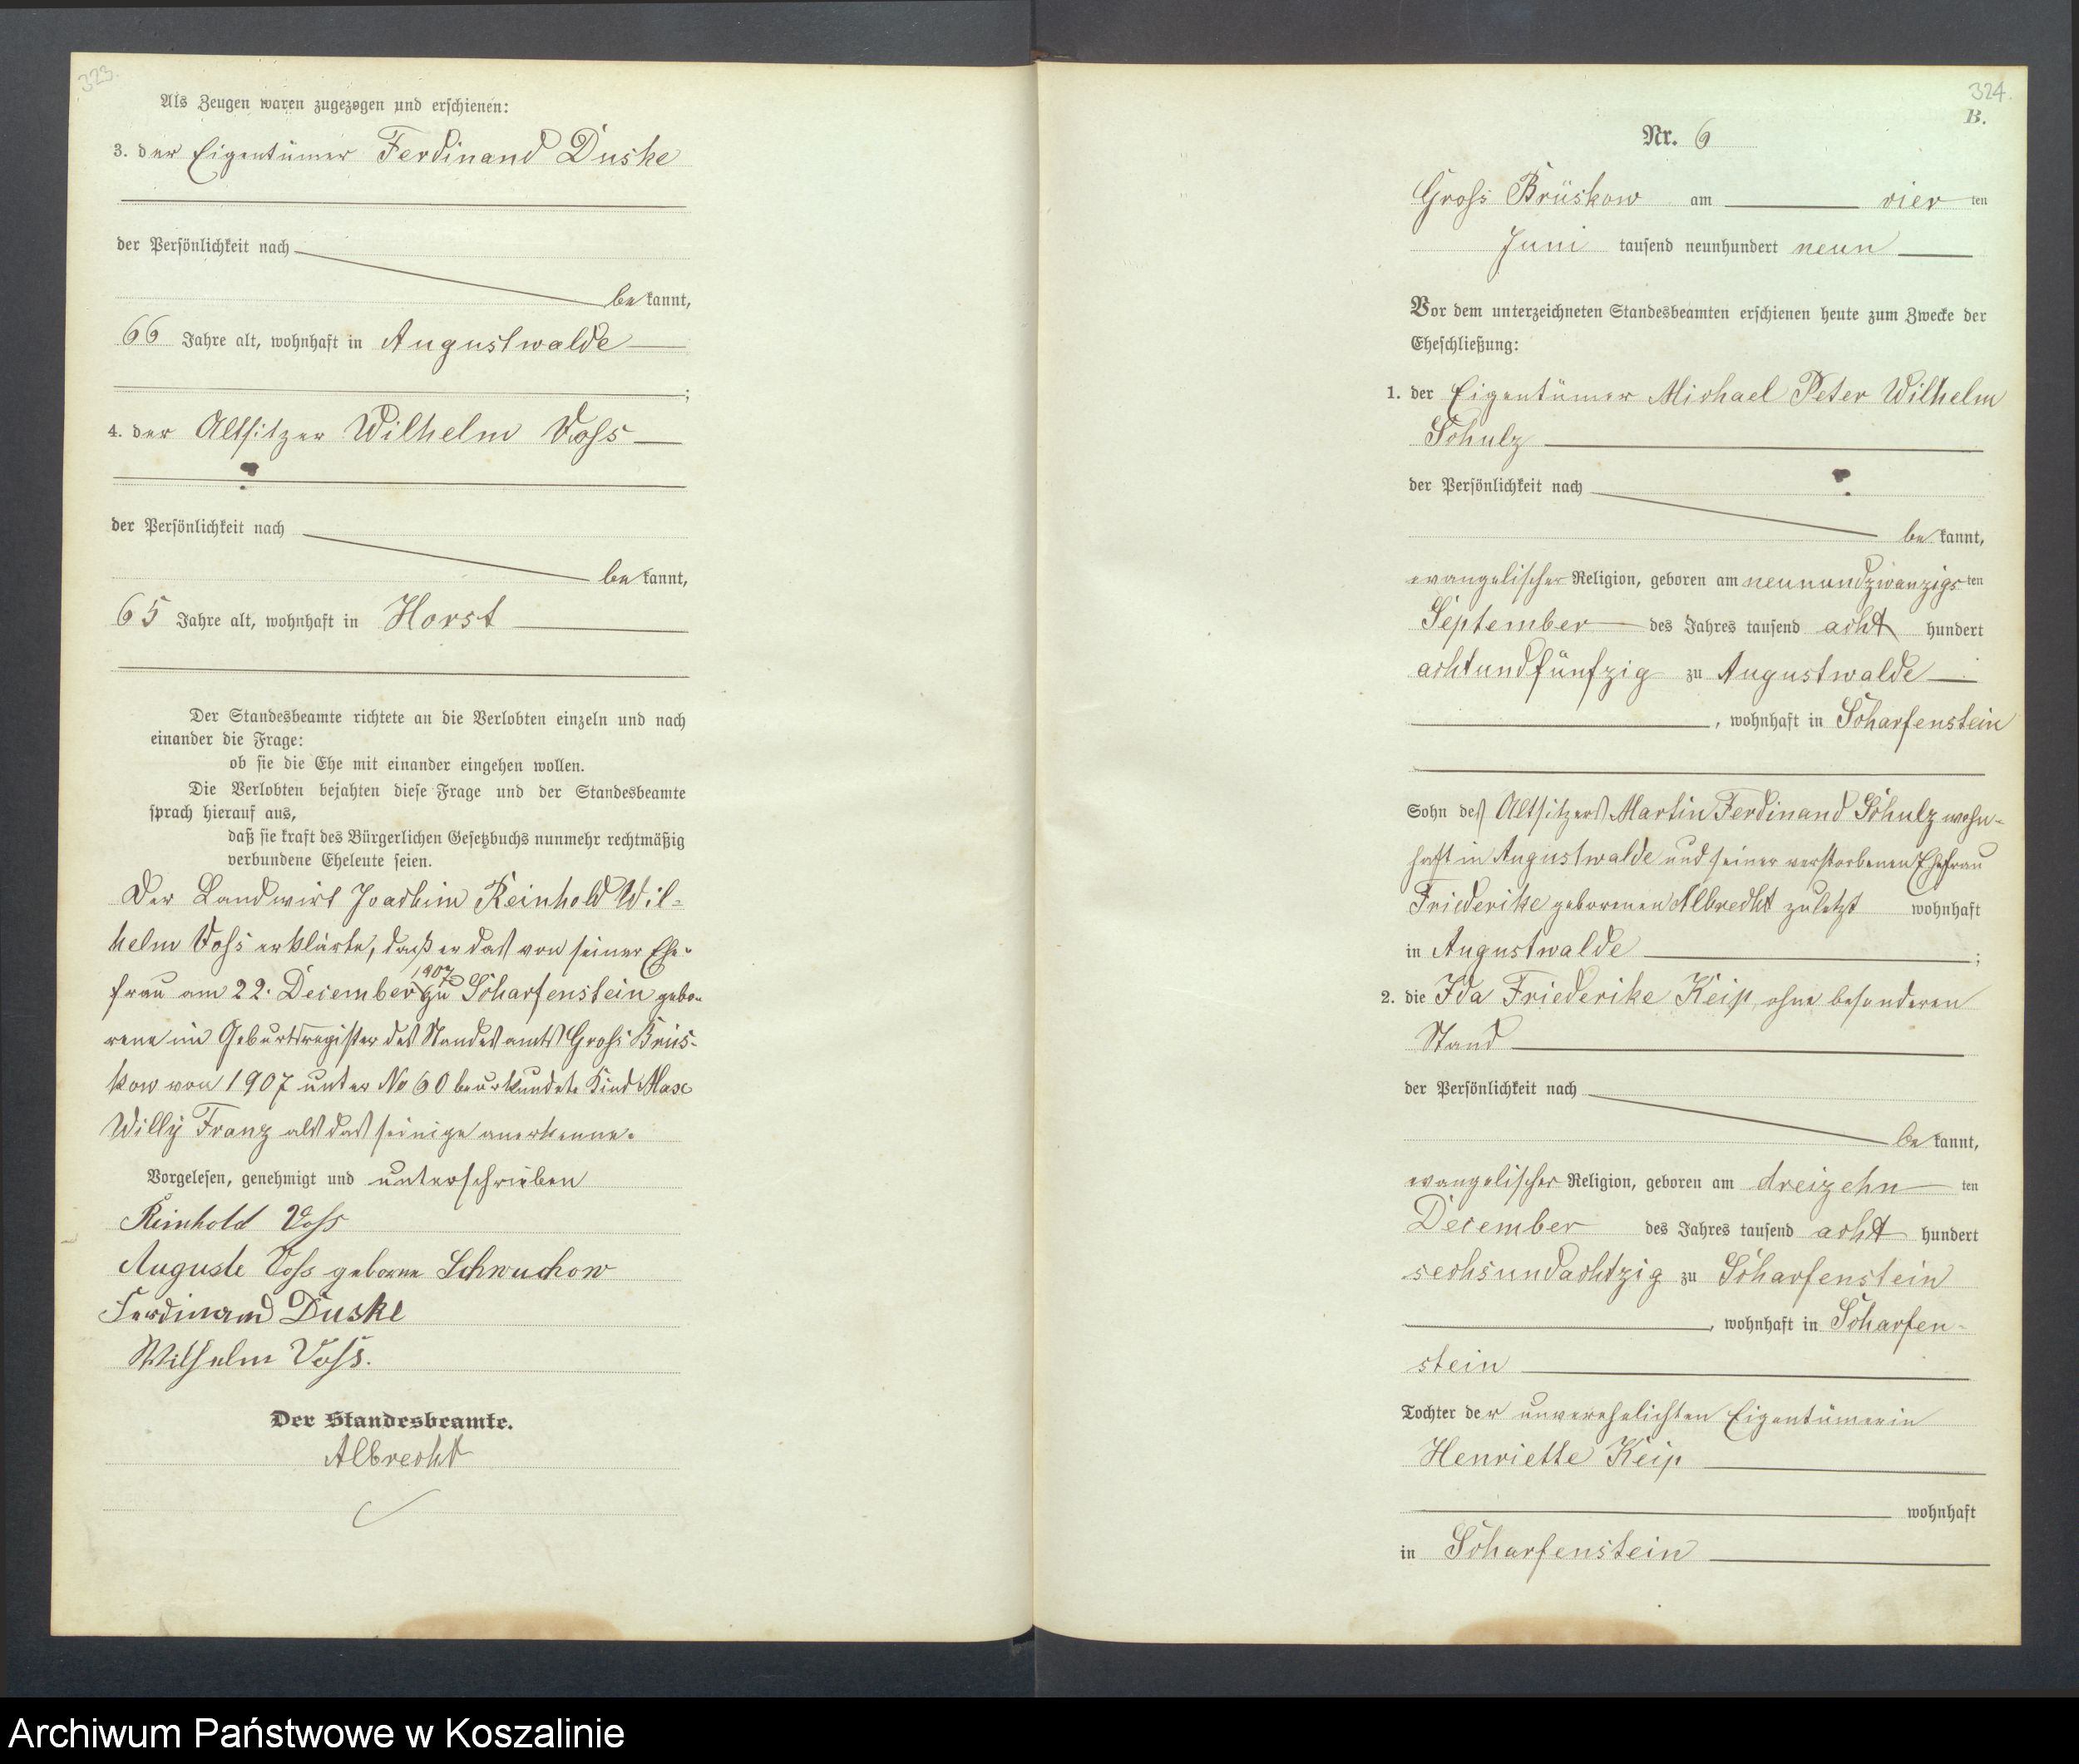 323.
Als Zeugen waren zugezogen und erschienen:
3. der Eigentümer Ferdinand Duske
der Persönlichkeit nach
be kannt,
66 Jahre alt, wohnhaft in Augustwalde
;
4. der Altsitzer Wilhelm Voss
der Persönlichkeit nach
be kannt,
65 Jahre alt, wohnhaft in Horst
Der Standesbeamte richtete an die Verlobten einzeln und nach
einander die Frage:
ob sie die Ehe mit einander eingehen wollen.
Die Verlobten bejahten diese Frage und der Standesbeamte
sprach hierauf aus,
daß sie kraft des Bürgerlichen Gesetzbuchs nunmehr rechtmäßig
verbundene Eheleute seien.
Der Landwirt Joachim Reinhold Wil=
helm Voss erklärte, daß er das von seiner Ehe=
frau am 22. December 1907 zu Scharfenstein gebo=
rene im Geburtsregister des Standesamts Gross Brüs=
kow von 1907 unter No 60 beurkundete Kind Max
Willy Franz als das seinige anerkenne.
Vorgelesen, genehmigt und unterschrieben
Reinhold Voss
Auguste Voss geborne Schwuchow
Ferdinand Duske
Wilhelm Voss.
Der Standesbeamte.
Albrecht
324.
B.
Nr. 6
Gross Brüskow am vier ten
Juni tausend neunhundert neun
Vor dem unterzeichneten Standesbeamten erschienen heute zum Zwecke der
Eheschließung:
1. der Eigentümer Michael Peter Wilhelm
Schulz
der Persönlichkeit nach
be kannt,
evangelischer Religion, geboren am neunundzwanzigs ten
September des Jahres tausend acht hundert
achtundfünfzig zu Augustwalde
, wohnhaft in Scharfenstein
Sohn des Altsitzers Martin Ferdinand Schulz wohn=
haft in Augustwalde und seiner verstorbenen Ehefrau
Friederike geborenen Albrecht zuletzt wohnhaft
in Augustwalde ;
2. die Ida Friederike Keip, ohne besonderen
Stand
der Persönlichkeit nach
be kannt,
evangelischer Religion, geboren am dreizehn ten
December des Jahres tausend acht hundert
sechsundachtzig zu Scharfenstein
, wohnhaft in Scharfen=
stein
Tochter der unverehelichten Eigentümerin
Henriette Keip
wohnhaft
in Scharfenstein
Archiwum Państwowe w Koszalinie